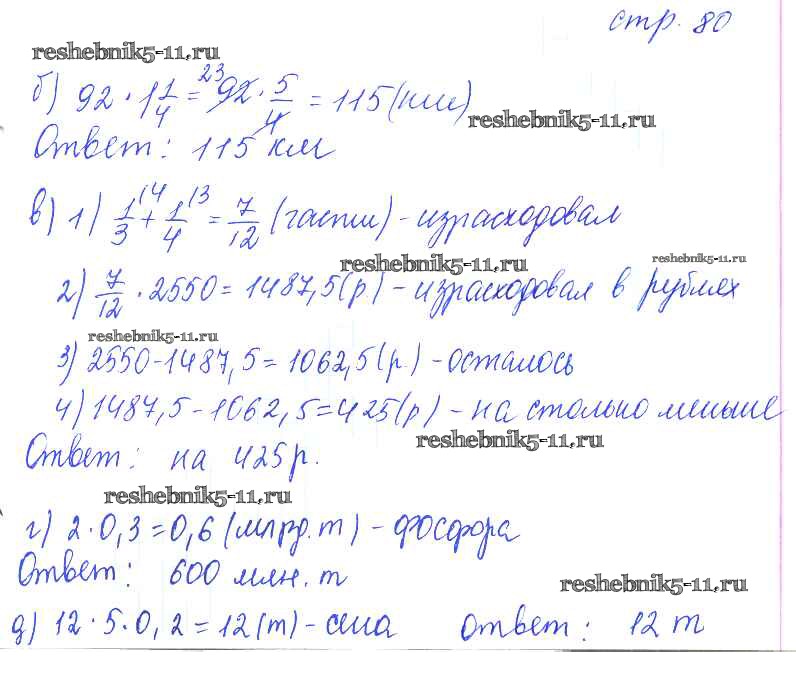 стр. 80
reshebnik5-11.ru
б) 92 · 1 1/4 = 92 23 · 5/4 = 115 (км)
reshebnik5-11.ru
Ответ: 115 км
в) 1) 1/3 \4 + 1/4 \3 = 7/12 (части) - израсходовал
reshebnik5-11.ru reshebnik5-11.ru
2) 7/12 · 2550 = 1487,5 (р.) - израсходовал в рублях
reshebnik5-11.ru
3) 2550 - 1487,5 = 1062,5 (р.) - осталось
4) 1487,5 - 1062,5 = 425 (р) - на столько меньше
reshebnik5-11.ru
Ответ: на 425 р.
reshebnik5-11.ru
г) 2 · 0,3 = 0,6 (млрд. т) - фосфора
Ответ: 600 млн. т
reshebnik5-11.ru
д) 12 · 5 · 0,2 = 12 (т) - сена Ответ: 12 т